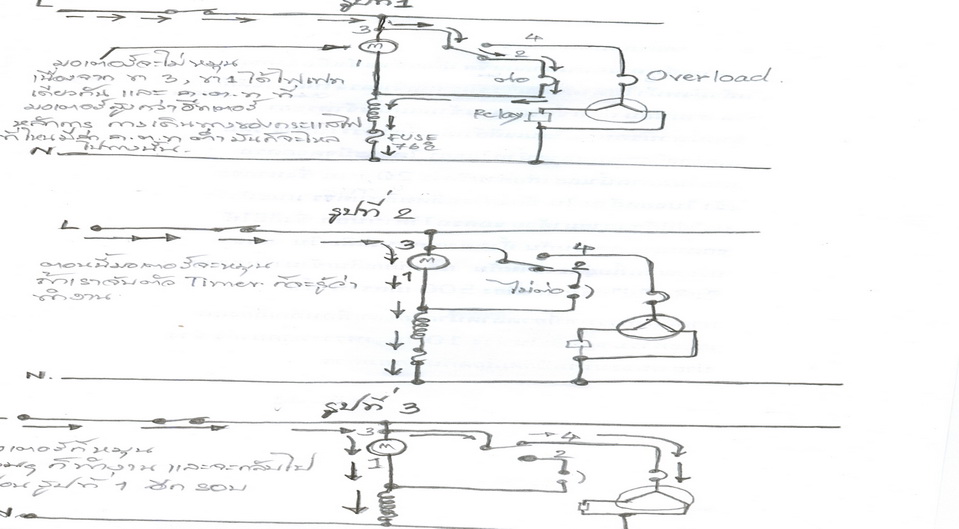 รูปที่ 1
L
3
M
1
4
2
ต่อ
Overload.
Relay
FUSE
76c
มอเตอร์จะไม่หมุน
เนื่องจาก ขา 3, ขา 1 ได้ไฟเฟส
เดียวกัน และ ค.ต.ท ที่
มอเตอร์สูงกว่าฮีทเตอร์
หลักการ การเดินทางของกระแสไฟ
ที่ไหนมีค่า ค.ต.ท ต่ำ มันก็จะไหล
ไปทางนั้น.
N.
รูปที่ 2
L
3
M
1
4
2
ไม่ต่อ
ตอนนี้มอเตอร์จะหมุน
ถ้าเราจับตัว Timer ก็จะรู้ว่า
ทำงาน
N.
รูปที่ 3
3
M
1
4
2
มอเตอร์ก็หมุน
ก็ทำงาน และจะกลับไป
รูปที่ 1 อีก รอบ